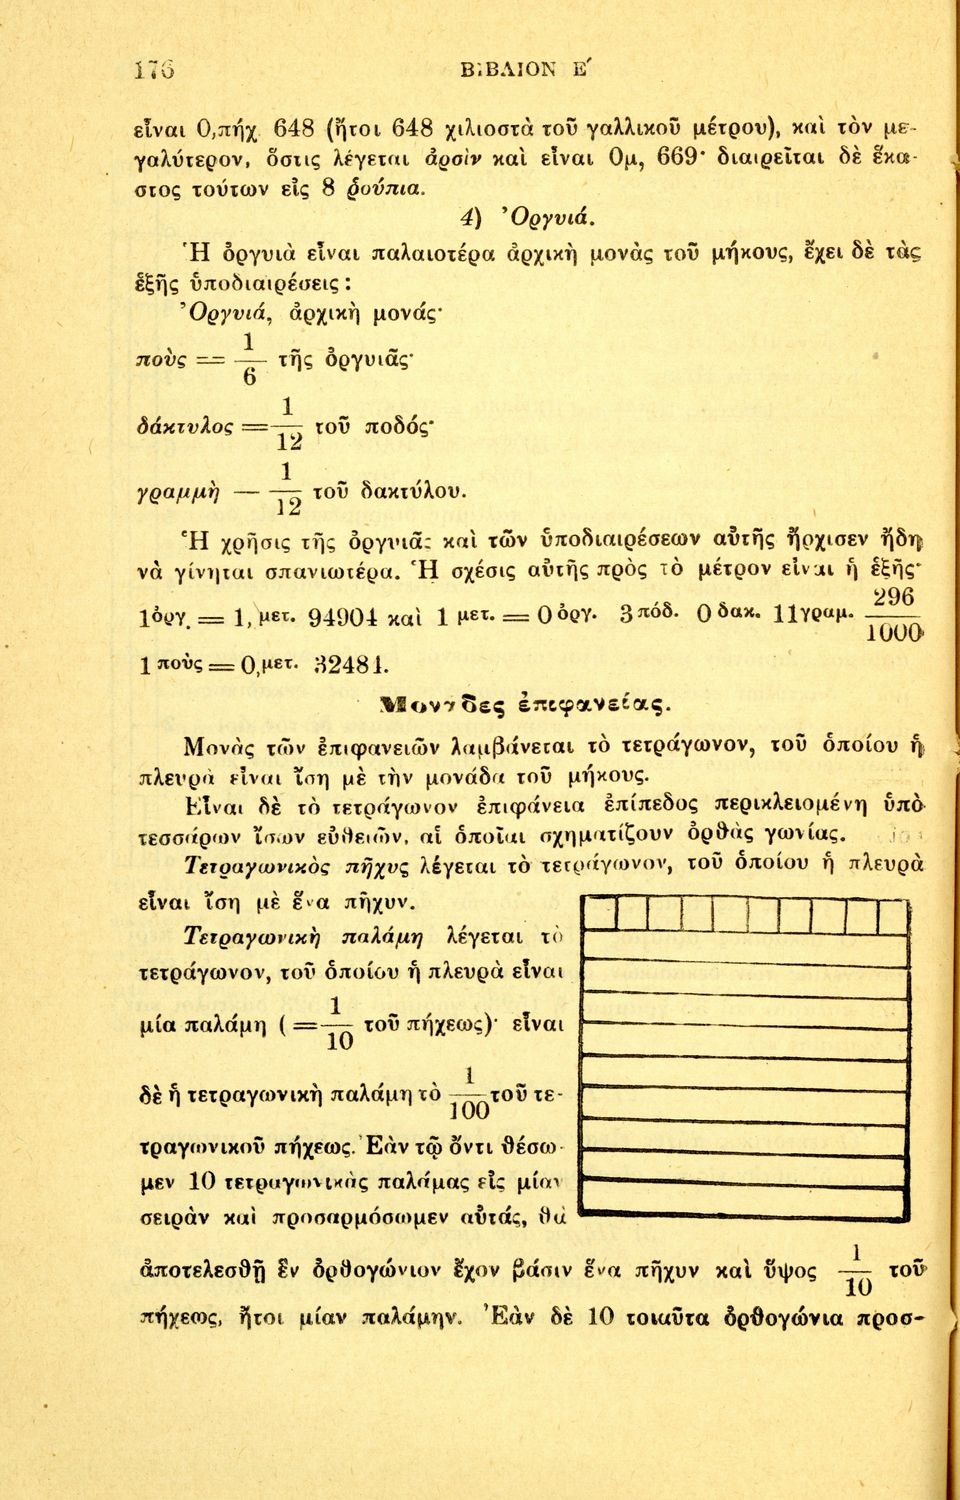 176 ΒΙΒΛΙΟΝ Ε΄
εἶναι 0,πήχ. 648 (ἤτοι 648 χιλιοστὰ τοῦ γαλλικοῦ μέτρου), καὶ τὸν με-
γαλύτερον, ὅστις λέγεται ἀρσὶν καὶ εἶναι 0μ, 669· διαιρεῖται δὲ ἕκα-
στος τούτων εἰς 8 ῥούπια.
4) Ὀργυιά.
Ἡ ὀργυιὰ εἶναι παλαιοτέρα ἀρχικὴ μονὰς τοῦ μήκους, ἔχει δὲ τὰς
ἑξῆς ὑποδιαιρέσεις:
Ὀργυιά, ἀρχικὴ μονάς·
ποὺς = 1/6 τῆς ὀργυιᾶς·
δάκτυλος = 1/12 τοῦ ποδός·
γραμμὴ — 1/12 τοῦ δακτύλου.
Ἡ χρῆσις τῆς ὀργυιᾶς καὶ τῶν ὑποδιαιρέσεων αὐτῆς ἤρχισεν ἤδη
νὰ γίνηται σπανιωτέρα. Ἡ σχέσις αὐτῆς πρὸς τὸ μέτρον εἶναι ἡ ἑξῆς·
1ὀργ. = 1,μετ. 94904 καὶ 1 μετ. = 0 ὀργ. 3 πόδ. 0 δακ. 11γραμ. 296/1000
1 ποὺς = 0,μετ. 32481.
Μονάδες ἐπιφανείας.
Μονὰς τῶν ἐπιφανειῶν λαμβάνεται τὸ τετράγωνον, τοῦ ὁποίου ἡ
πλευρὰ εἶναι ἴση μὲ τὴν μονάδα τοῦ μήκους.
Εἶναι δὲ τὸ τετράγωνον ἐπιφάνεια ἐπίπεδος περικλειομένη ὑπὸ
τεσσάρων ἴσων εὐθειῶν, αἱ ὁποῖαι σχηματίζουν ὀρθὰς γωνίας.
Τετραγωνικὸς πῆχυς λέγεται τὸ τετράγωνον, τοῦ ὁποίου ἡ πλευρὰ
εἶναι ἴση μὲ ἕνα πῆχυν.
Τετραγωνικὴ παλάμη λέγεται τὸ
τετράγωνον, τοῦ ὁποίου ἡ πλευρὰ εἶναι
μία παλάμη ( = 1/10 τοῦ πήχεως)· εἶναι
δὲ ἡ τετραγωνικὴ παλάμη τὸ 1/100 τοῦ τε-
τραγωνικοῦ πήχεως. Ἐὰν τῷ ὄντι θέσω-
μεν 10 τετραγωνικὰς παλάμας εἰς μίαν
σειρὰν καὶ προσαρμόσωμεν αὐτάς, θὰ
ἀποτελεσθῇ ἓν ὀρθογώνιον ἔχον βάσιν ἕνα πῆχυν καὶ ὕψος 1/10 τοῦ
πήχεως, ἤτοι μίαν παλάμην. Ἐὰν δὲ 10 τοιαῦτα ὀρθογώνια προσ-